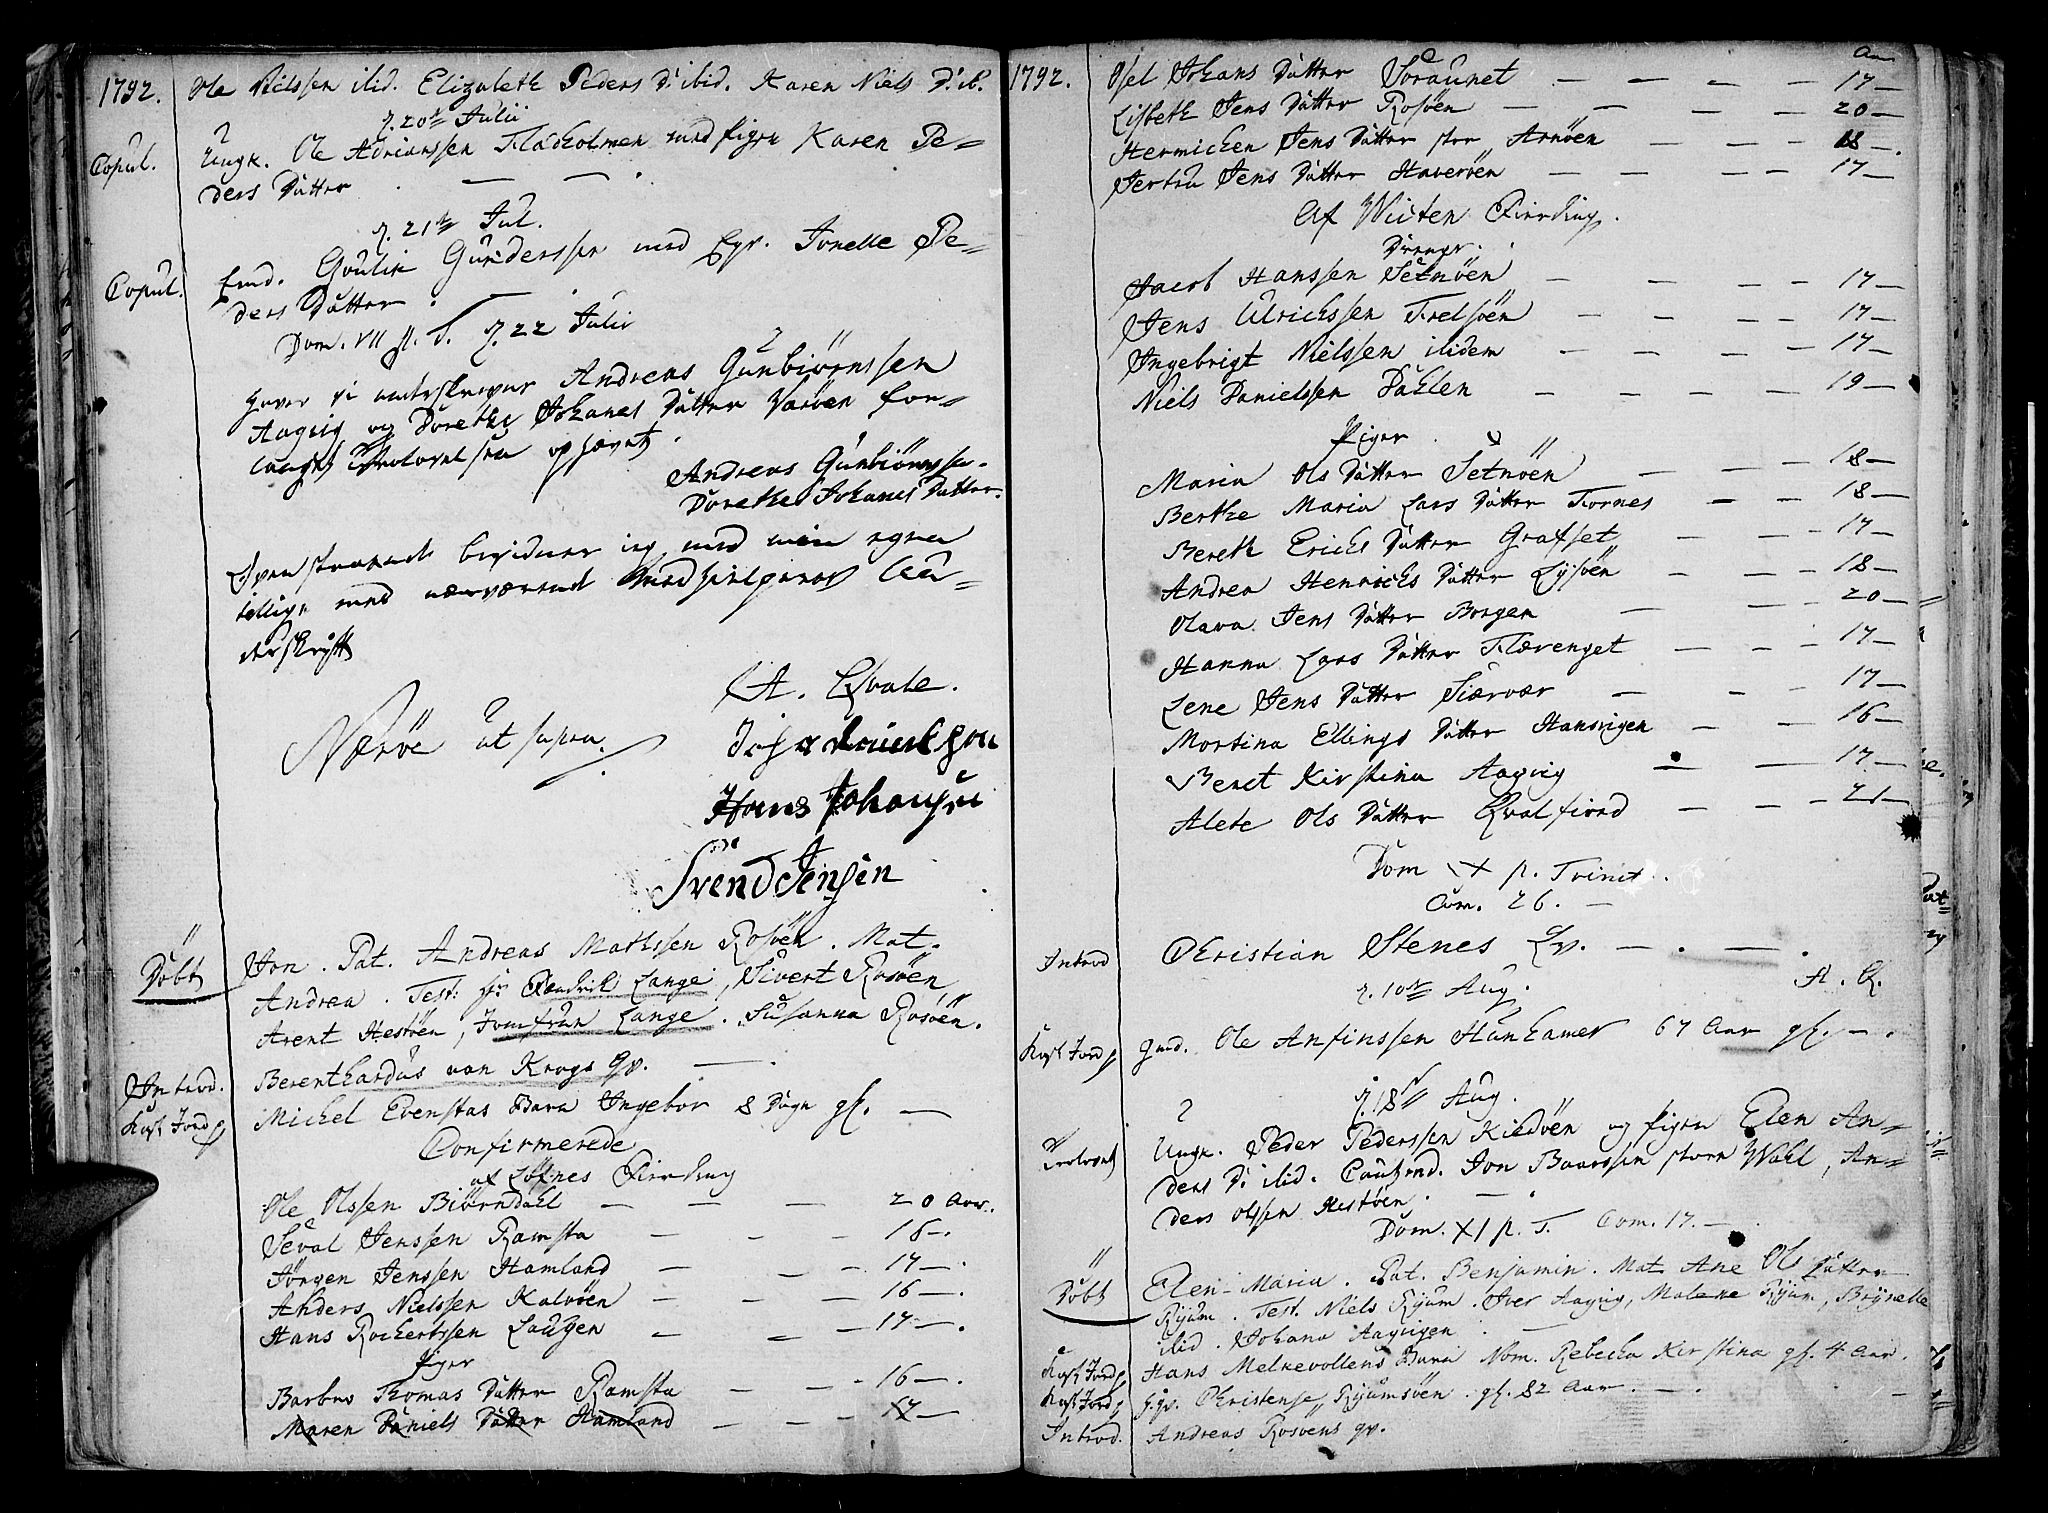 1792.
Ole Nilssen ibid. Elizabeth Peders D. ibid. Karen Niels D. ib.
d. 20de Julii
Copul.
Ungk. Ole Adrianssen Fladholmen med Pigen Karen Pe=
ders Datter
d. 21de Jul.
Copul.
Emd. Goulik Gundersen med Egv. Jonelle Pe=
ders Datter
Dom. VII p. T. d. 22 Julii
haver vi underskrevne Andreas Gunbiörnssen
Aagvig og Dorethe Johanes Datter Varöen for=
langt Trolovelsen ophævet.
Andreas Gunbiörnssen.
Dorethe Johanes Datter.
Ovenstaaende bevidner ieg med min egen
tillige med nærværende Medhielperes Un=
derskrift
Næröe ut supra.
A. Qvale.
Hans Johansen
Svend Jensen
Döbt
Jon. Pat. Andreas Mathssen Rosöen. Mat.
Andrea. Test: Hr Hendrik Lange, Sivert Rosöen
Arent Hestöen, Jomfrue Lange. Susanna Rosöen.
Introd.
Berenthardus von Krogs qv.
Kast Jord p
Michel Evenstas Barn Ingebor 8 Dage gl.
Confirmerede
af Löfnes Fierding
Ole Olssen Biörndahl 20 Aar.
Seval Jenssen Ramsta 18
Jörgen Jenssen Hamland 17
Anders Nielssen Kalvöen 16
Hans Rochertssen Laugen 17
Piger
Barbro Thomas Datter Ramsta 16
Maren Daniels Datter Hamland 17
1792.
Aar
Johans Datter Soraunet 17
Lisbeth Jens Datter Rosöen 20
Hermichen Jens Datter stor Arnöen 18
Jertru Jens Datter Haveröen 17
Af Wicten Fierding.
Drenge.
Jacob Hanssen Setnöen 17
Jens Ulrichssen Trelsöen 17
Ingebrigt Nielssen ibidem 17
Niels Danielssen Dahlen 19
Piger
Maria Ols Datter Setnöen 18
Berthe Maria Lars Datter Fornes 18
Bereth Erichs Datter Grafset 17
Andrea Henrichs Datter Lysöen 18
Olava Jens Datter Borgen 20
Hanna Lars Datter Flærenget 17
Lene Jens Datter Siærvær 17
Mortina Ellings Datter Hansvigen 16
Beret Kirstina Aagvig 17
Alete Ols Datter Qvalfiord 21
Dom X p. Trinit.
Com. 26.
Introd
Christian Stenes Qv.
A. Q.
d. 10de Aug.
Kast Jord p
Gmd. Ole Anfinssen Hunhamer 67 Aar gl.
d. 18de Aug.
Trolovet
Ungk. Peder Pederssen Kiedöen og Pigen Elen An=
ders D. ibid. Caut: Emd. Jon Baarssen store Wahl, An=
ders Olssen Hestöen.
Dom. XI p. T. Com. 17.
Döbt
Elen-Maria. Pat. Benjamin. Mat. Ane Ols Datter
Ryum. Test. Niels Ryum. Iver Aagvig, Malene Ryum, Brynelle
ibid. Johana Aagvigen.
Kast Jord p
Hans Melnevollens Barn Nom. Rebecka Kirstina gl. 4 Aar.
Kast Jord p
Christense Ryumsöen. gl. 82 Aar.
Introd.
Andreas Rosöens qv.